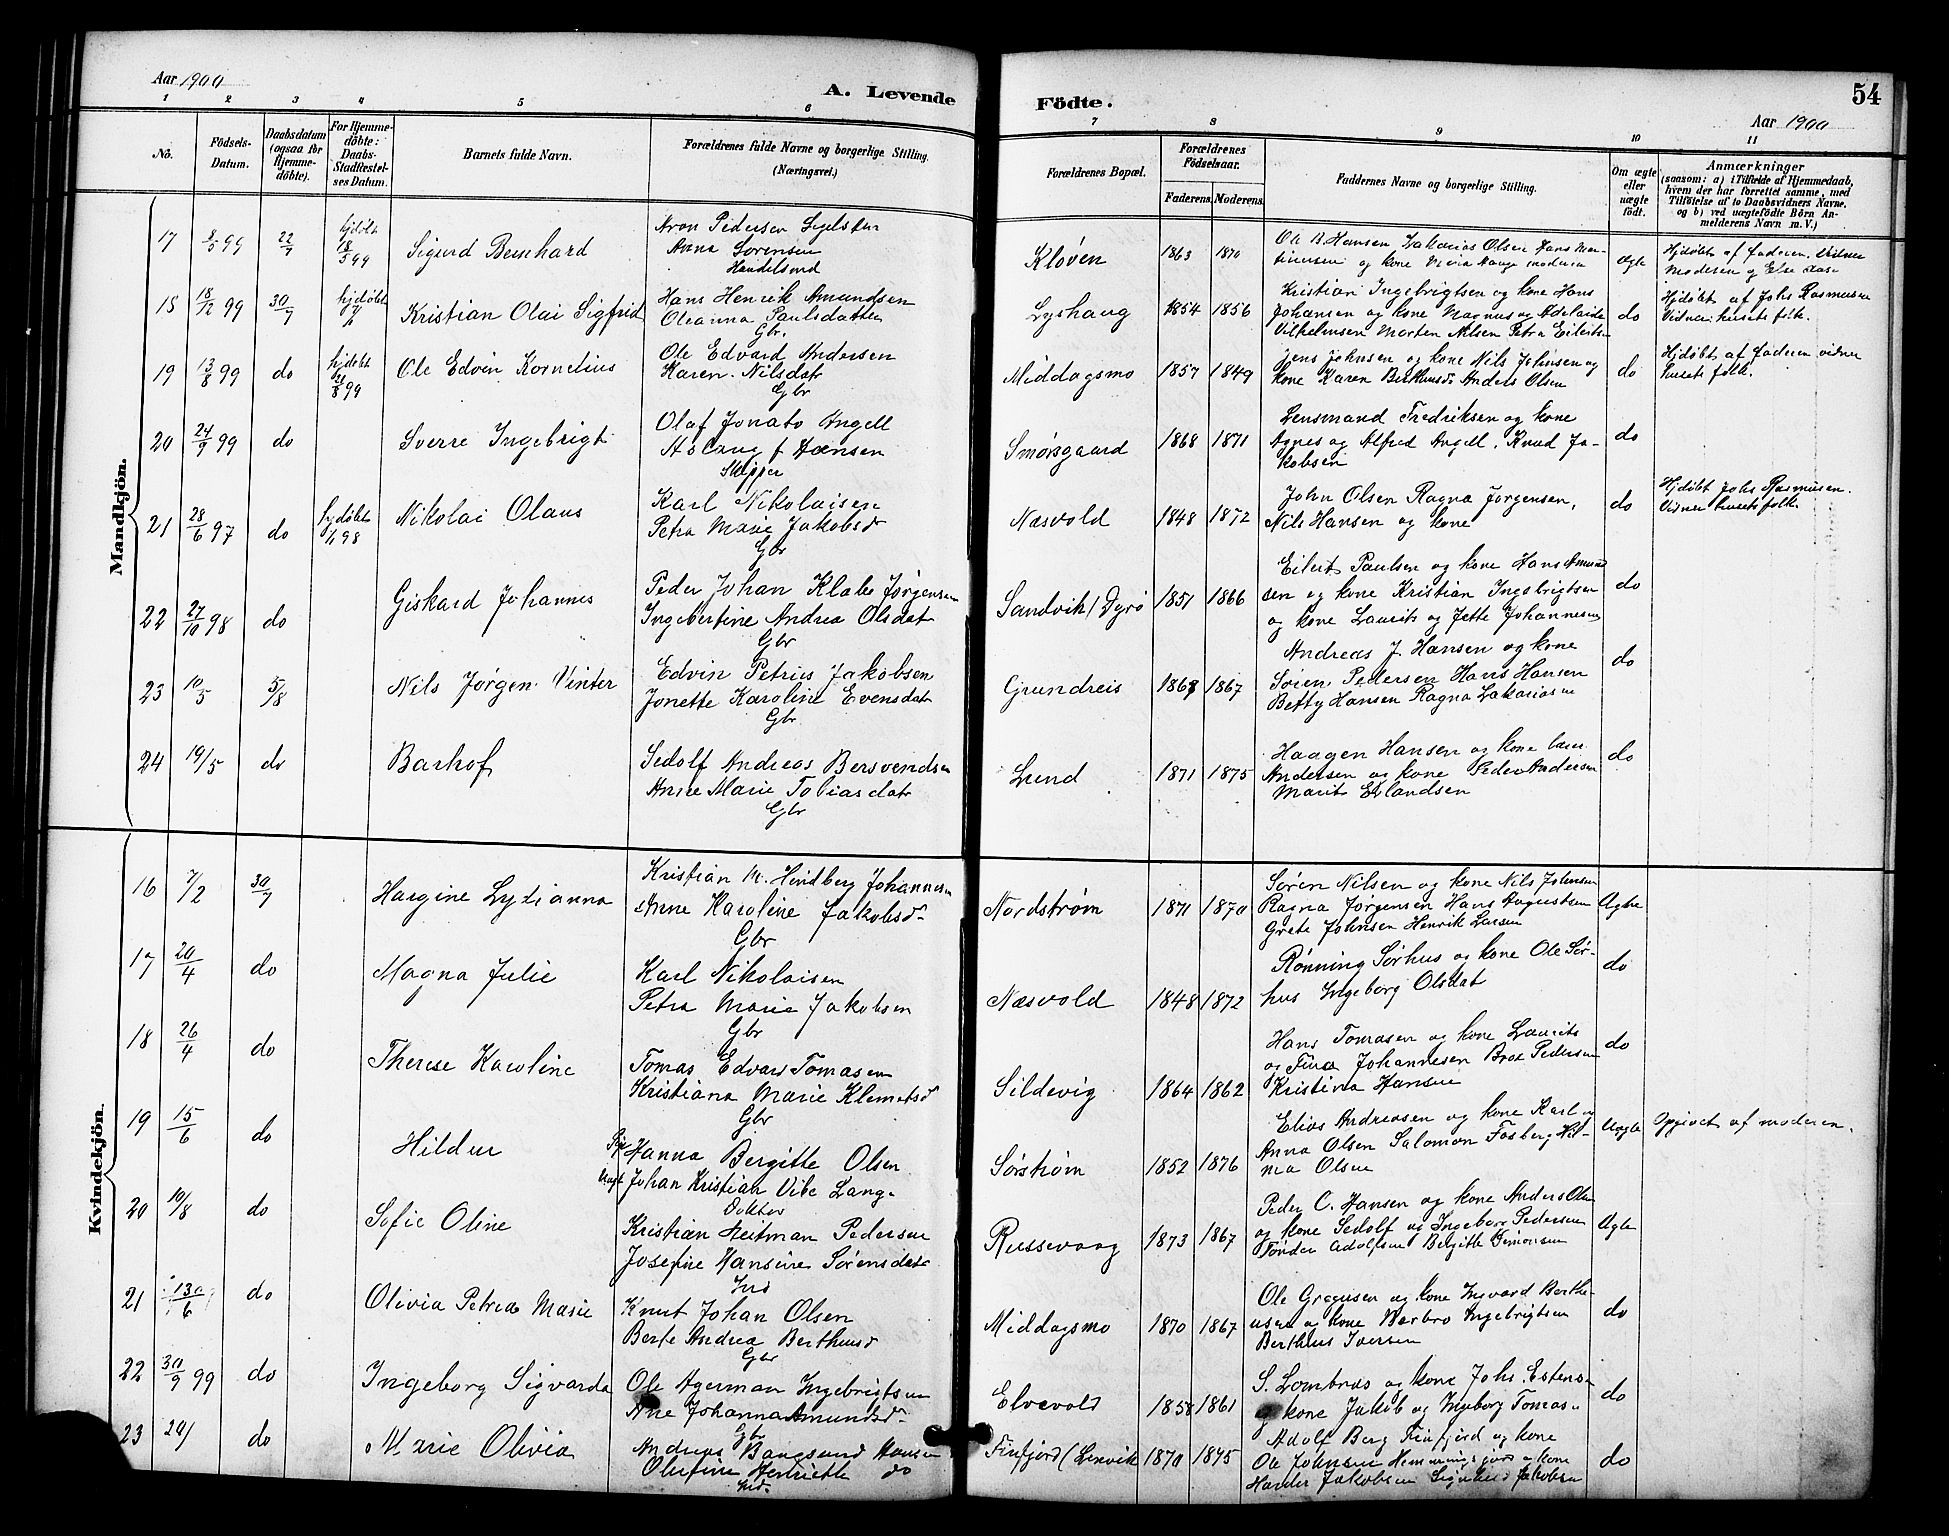 Aar 1900
A. Levende
Födte.
54
Aar 1900
1 2 3 4 5 6 7 8 9 10 11
No.
Födsels-
Datum.
Daabsdatum
(ogsaa for
Hjemme-
döbte).
For Hjemme-
döbte:
Daabs-
Stadfæstel-
ses Datum.
Barnets fulde Navn.
Forældrenes fulde Navne og borgerlige Stilling.
(Næringsvei.)
Forældrenes Bopæl.
Forældrenes
Födselsaar.
Faderens.
Moderens.
Faddernes Navne og borgerlige Stilling.
Om ægte
eller
uægte
födt.
Anmærkninger
(saasom: a) i Tilfælde af Hjemmedaab,
hvem der har forrettet samme, med
Tilföielse af to Daabsvidners Navne.
og b) ved uægtefödte Börn An-
melderens Navn m. V.)
Mandkjön.
17 8/5 99 22/7 hjdøbt 18/5 99 Sigurd Bernhard
Aron Pedersen
Anna Sørensen
Handelsmd
Kløven 1863 1870
Ole B. Hansen Zakarias Olsen Hans Mar-
tinussen og kone
ægte
Hjdøbt af faderen. Vidner
Moderen og Else
18 18/12 99 30/7 hjdøbt Kristian Olai Sigfrid
Hans Henrik Amundsen
Oleanna Paulsdatter
Gbr.
Lyshaug 1854 1856
Kristian Ingebrigtsen og kone Hans
Johansen og kone Magnus og Adelaide
Vilhelmsen Morten Nilsen Petra Eilertsen
do
Hjdøbt af Johs Rasmussen
Vidner: husets folk.
19 13/8 99 do hjdøbt 21/8 99 Ole Edvin Kornelius
Ole Edvard Andersen
Karen Nilsdatr
Gbr
Middagsmo 1857 1849
Jens Johnsen og kone Nils Johnsen og
kone Karen Berthusd. Anders Olsen
do
Hjdøbt af faderen vidner
husets folk.
20 24/9 99 do Sverre Ingebrigt
Olaf Jonats Angell
Aslaug f Hansen
Skipper
Smørsgaard 1868 1871
Lensmand Fredriksen og kone
Agnes og Alfred Angell. Knud Ja-
kobsen
do
21 28/6 97 do hjdøbt 98 Nikolai Olaus
Karl Nikolaisen
Petra Marie Jakobsd
Gbr
Næsvold 1848 1872
John Olsen Ragna Jørgensen,
Nils Hansen og kone
do
Hjdøbt Johs Rasmussen.
Vidner husets folk.
22 27/10 98 do Giskard Johannes
Peder Johan Klabo Jørgensen
Ingebertine Andrea Olsdatr
Gbr
Sandvik / Dyrø 1851 1866
Eilert Paulsen og kone Hans Amund
sen og kone Kristian Ingebrigtsen
og kone Laurits og Jette Johannesen
do
23 10/5 5/8 Nils Jørgen Vinter
Edvin Petrus Jakobsen
Jonette Karoline Evensdatr
Gbr
Grundreis 1867 1867
Andreas J. Hansen og kone
Søren Pedersen Hans Hansen
Betty Hansen Ragna Zakariasen
do
24 19/5 do Barhof
Sedolf Andreas Bersvendsen
Anne Marie Tobiasdatr
Gbr
Lund 1871 1875
Haagen Hansen og kone lærer
Andersen og kone Peder Andersen
Marit Erlandsen
do
Kvindekjön.
16 7/2 30/7 Hargine Lydianna
Kristian M. Hindberg Johannesen
Anne Karoline Jakobsd.
Gbr
Nordstrøm 1871 1870
Søren Nilsen og kone Nils Johnsen
Ragna Jørgensen Hans Augustsen
Grete Johnsen Henrik Larsen
Ægte
17 20/4 do Magna Julie
Karl Nikolaisen
Petra Marie Jakobsen
Gbr
Næsvold 1848 1872
Rønning Sørhus og kone Ole Sør-
hus Ingeborg Olsdat
do
18 26/4 do Therese Karoline
Tomas Edvard Tomasen
Kristiana Marie Klemetsd
Gbr
Sildevig 1864 1862
Hans Tomasen og kone Laurits
og Fina Johannesen Brox Pedersen
Kristina Hansen
do
19 15/6 do Hildur
Pige Hanna Bergitte Olsen
Ungk Johan Kristian Vibe Lang.
Doktor
Sørstrøm 1852 1876
Elias Andreasen og kone Karl og
Anna Olsen Salomon Fosberg Hel-
ma Olsen
uægte
Opgivet af moderen.
20 10/8 do Sofie Oline
Kristian Heitman Pedersen
Josefine Hansine Sørensdatr
Ind
Russevaag 1873 1867
Peder C. Hansen og kone Anders Olsen
og kone Sedolf og Ingeborg Pedersen
Tønder Adolfsen Bergitte Simonsen
Ægte
21 130/6 do Olivia Petrea Marie
Knut Johan Olsen
Berte Andrea Berthusd
Gbr
Middagsmo 1870 1867
Ole Gregusen og kone Ingvard Berthe-
usen og kone Warbro Ingebrigtsen
Berthus Iversen
do
22 30/9 99 do Ingeborg Sigvarda
Ole Agerman Ingebrigtsen
Ane Johanna Amundsd.
Gbr
Elvevold 1858 1861
S. Lombnæs og kone Johs. Estensen
og kone Jakob og Ingeborg Tomas.
do
23 20/ do Marie Olivia
Andreas Bangsund Hansen
Olufine Henriette do
Ind.
Finfjord (Lenvik 1870 1875
Adolf Berg Finfjord og kone
Ole Johnsen Hemmingsjord og kone
Jakobsen Jakobsen
do